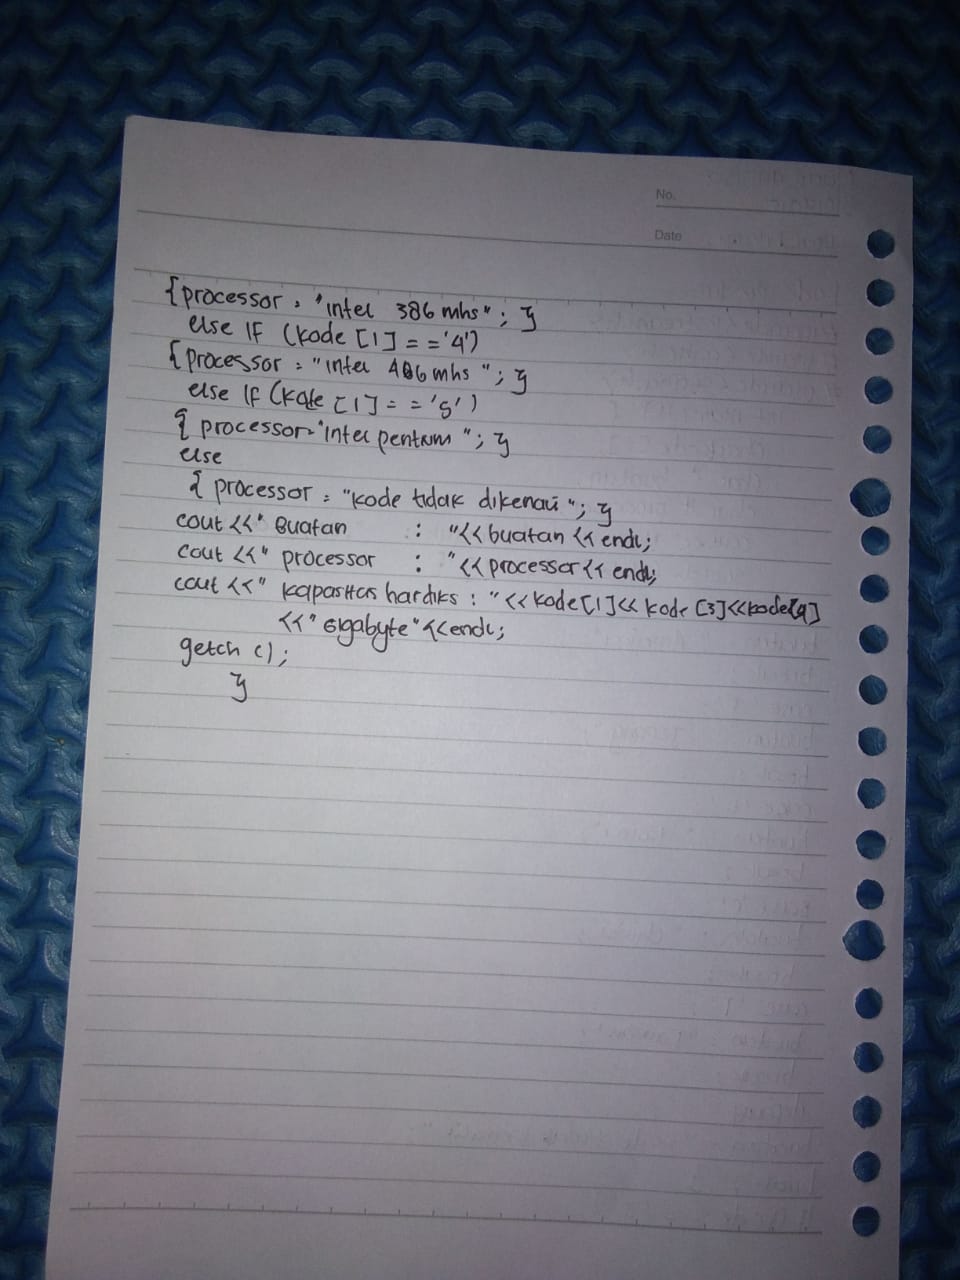 No.
Date
{processor = "intel 386 mhs"; }
else IF (kode [1] = = '4')
{processor = "intel 486 mhs "; }
else IF (kode [1] = = '5')
{ processor="intel pentium "; }
else
{ processor = "kode tidak dikenali "; }
cout <<" Buatan : "<< buatan << endl;
cout <<" processor : "<< processor << endl;
cout <<" kapasitas hardiks : "<< kode [1]<< kode [3]<<kode[4]
<<" Gigabyte"<<endl;
getch ();
}